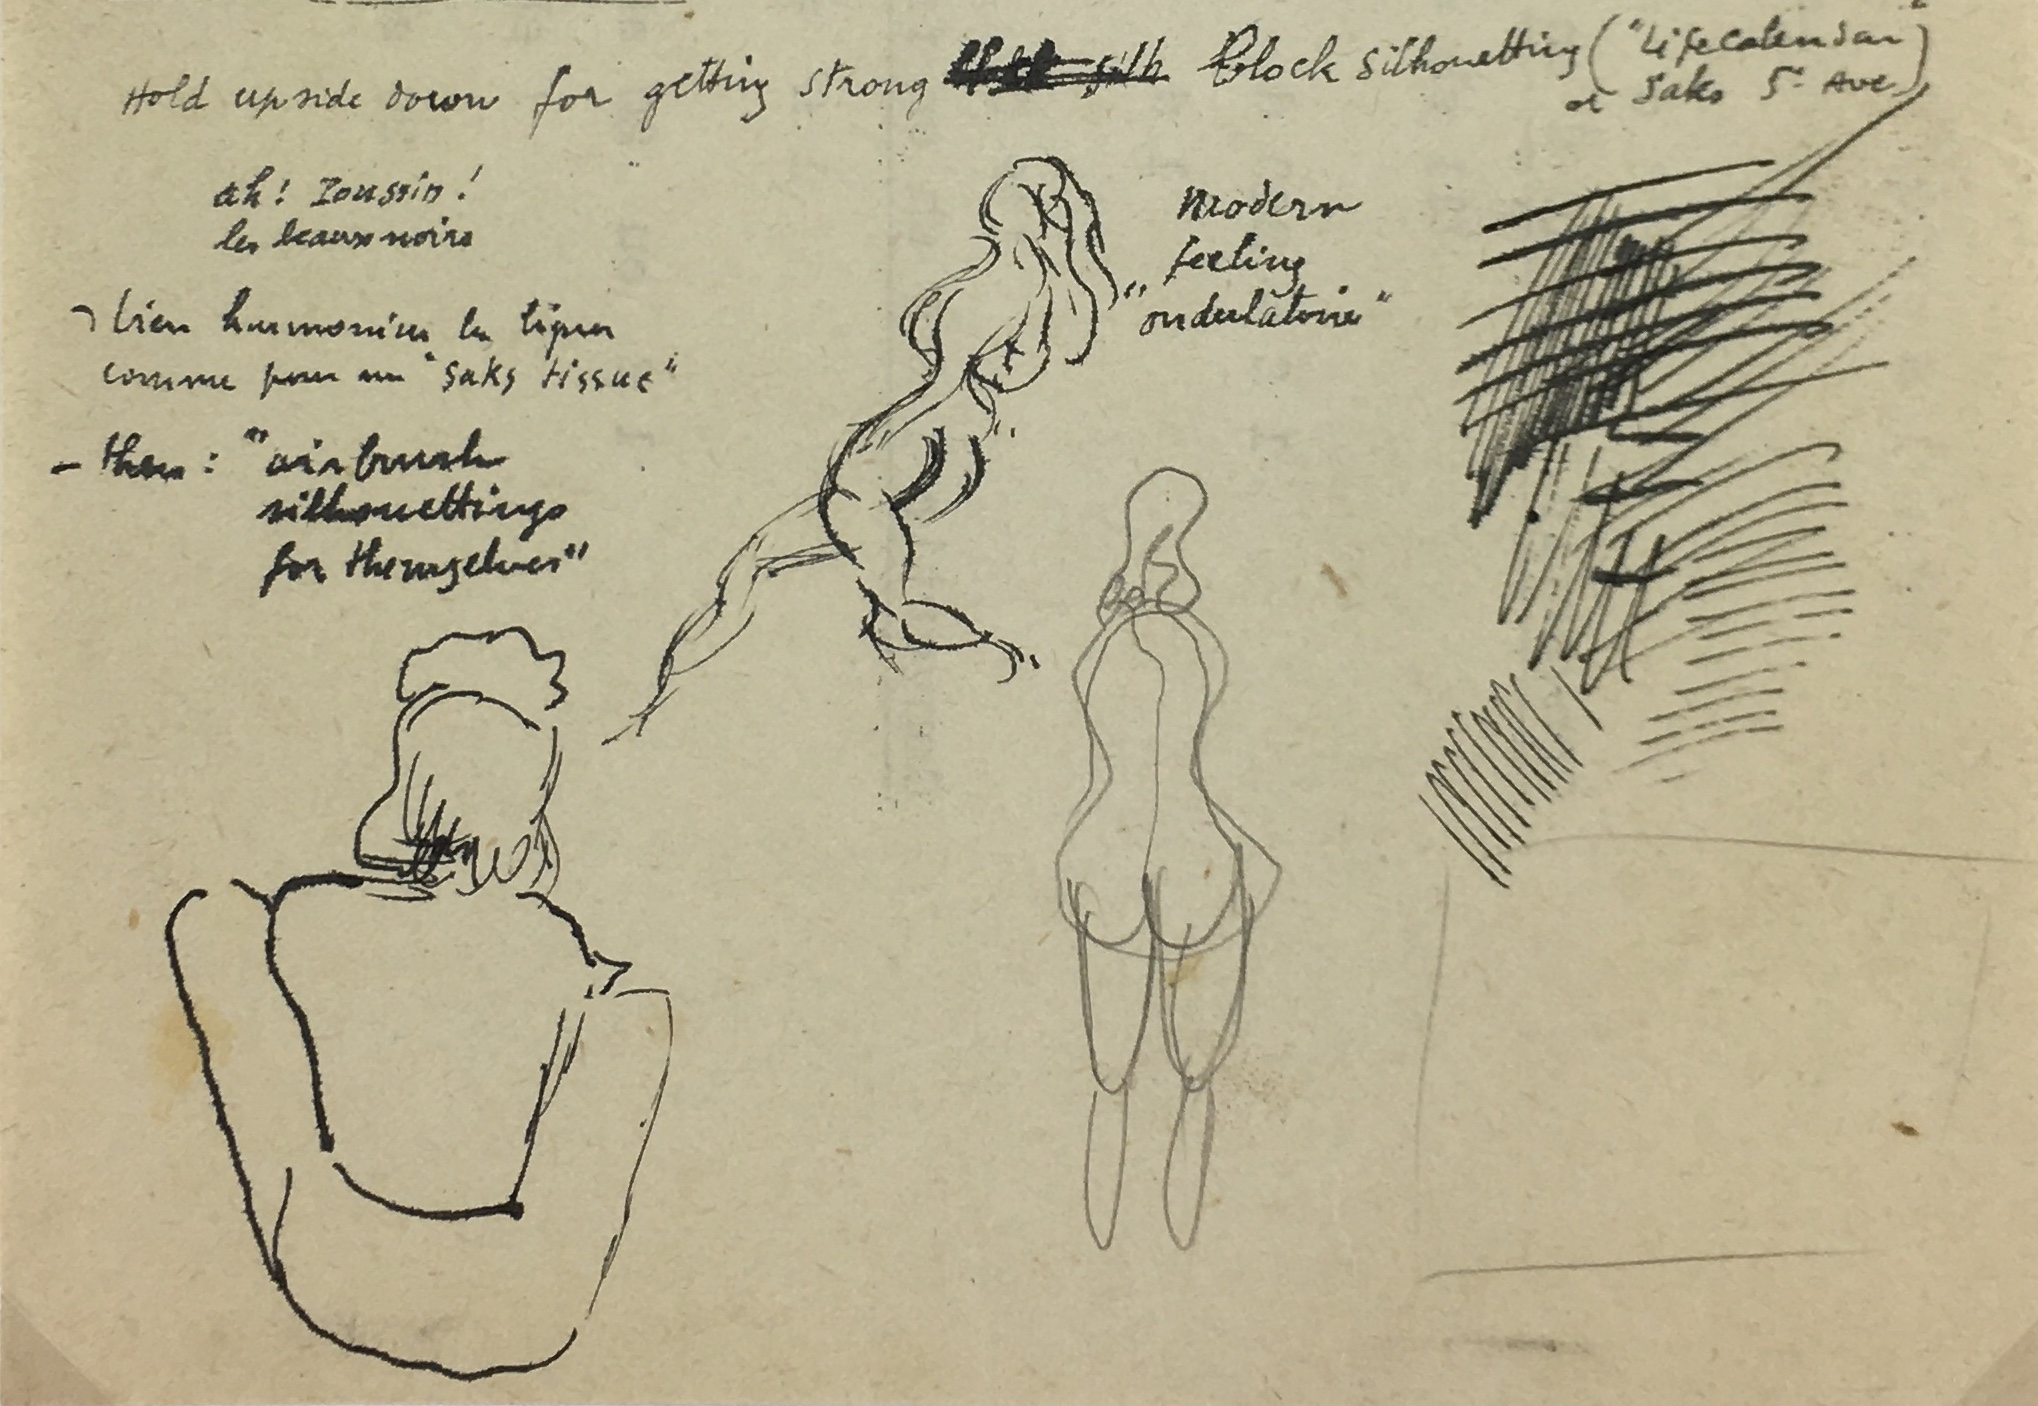 Hold upside down for getting strong block silhouetting ("Lifecalendar"
or Saks 5th Ave)
ah! Poussin!
les beaux noirs
bien harmoniser les lignes
comme pour un "Saks tissue"
- then: "airbrush
silhouettings
for themselves"
modern
feeling
"ondulatoire"